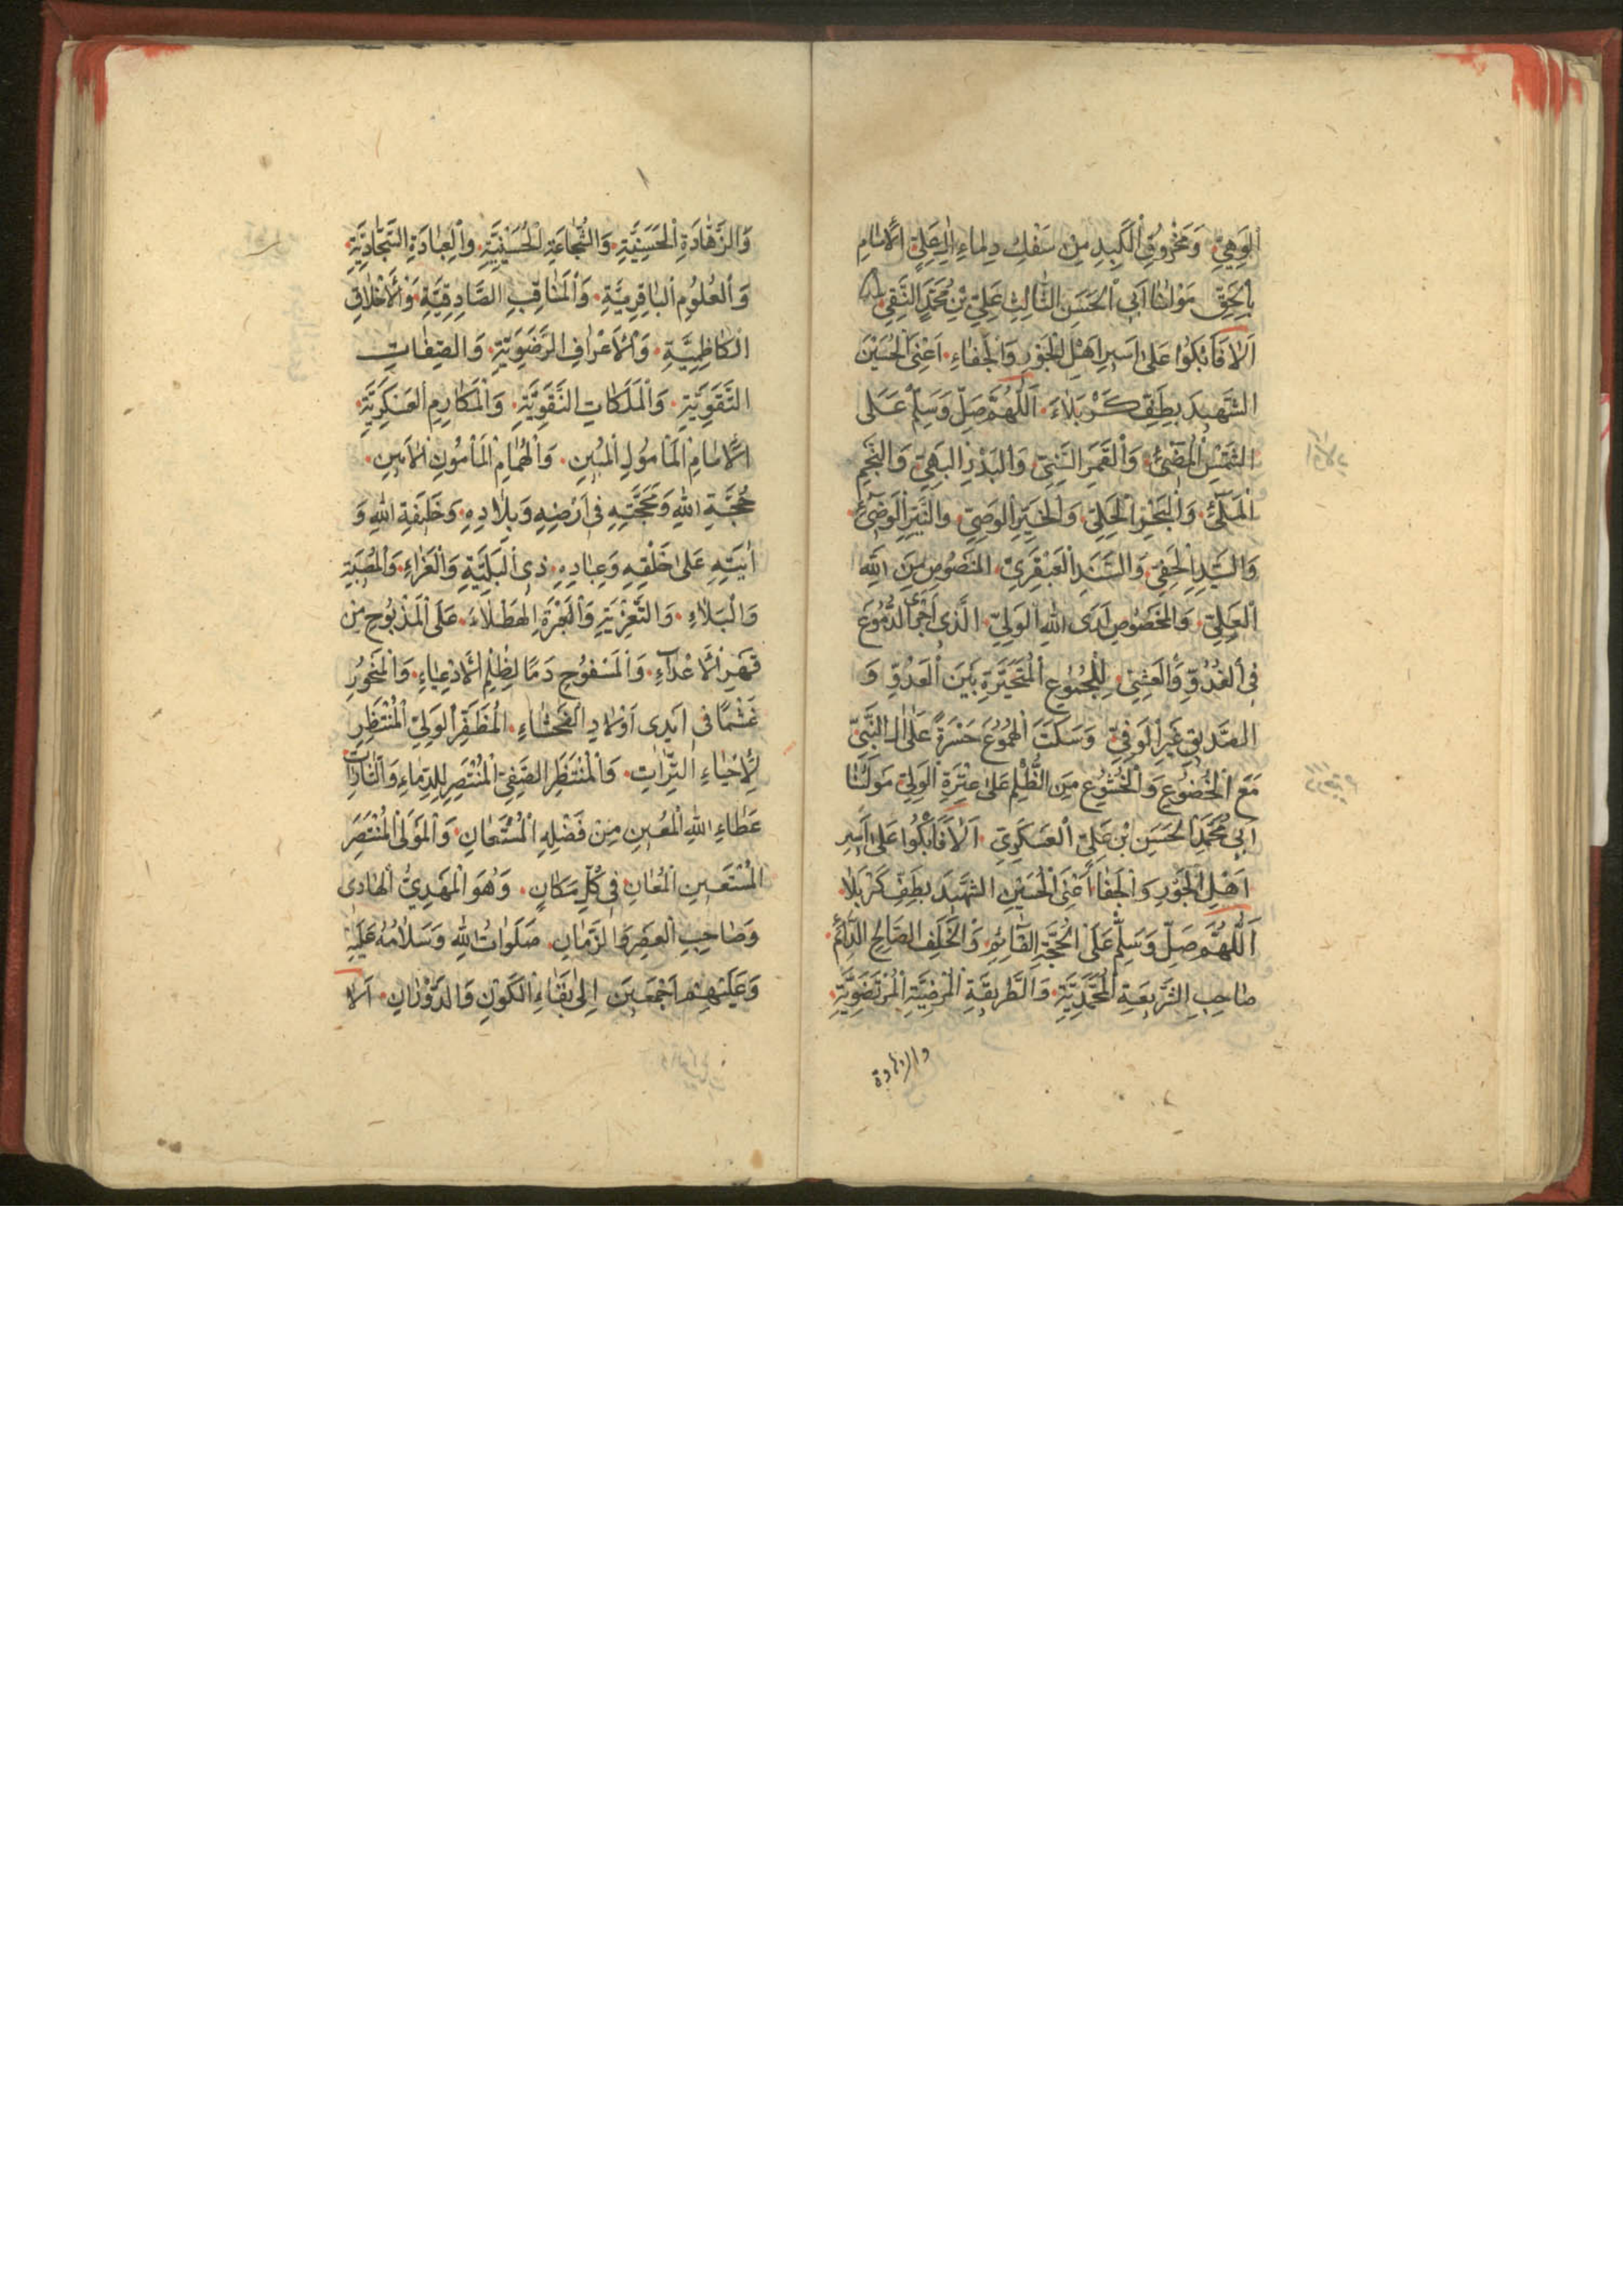 الوَهِيِّ وَمَخْرُوقِ الْكَبِدِ مِنْ سَفْكِ دِمَاءِ اٰلِ عَلِيٍّ الْاِمَامِ
بِالْحَقِّ مَوْلَانَا اَبِي الْحَسَنِ الثَّالِثِ عَلِيِّ بْنِ مُحَمَّدٍ النَّقِيِّ
اَلَا فَابْكُوا عَلٰى اَسِيرِ اَهْلِ الْجَوْرِ وَالْجَفَاءِ اَعْنِي الْحُسَيْنَ
الشَّهِيدَ بِطَفِّ كَرْبَلَاءَ اَللّٰهُمَّ صَلِّ وَسَلِّمْ عَلٰى
الشَّمْسِ الْمُضِيْئِ وَالْقَمَرِ السَّنِيِّ وَالْبَدْرِ الْبَهِيِّ وَالنَّجْمِ
وَالْبَحْرِ وَالنَّيِّرِ الْوَضِيْئِ
وَالسَّيِّدِ الْحَفِيِّ وَالسَّنَدِ الْعَبْقَرِيِّ الْمَنْصُوصِ مِنَ اللّٰهِ
الْعَلِيِّ وَالْمَخْصُوصِ لَدَى اللّٰهِ الْوَلِيِّ الَّذِي الدُّمُوعَ
فِي الْغُدُوِّ وَالْعَشِيِّ لِلْجُمُوعِ الْمُتَحَيِّرَةِ بَيْنَ الْعَدُوِّ وَ
الصَّدِيقِ غَيْرِ الْوَفِيِّ وَسَكَبَ الْهُمُوعَ حَسْرَةً عَلٰى اٰلِ النَّبِيِّ
مَعَ الْخُضُوعِ وَالْخُشُوعِ مِنَ الظُّلْمِ عَلٰى عِتْرَةِ الْوَلِيِّ مَوْلَانَا
اَبِي مُحَمَّدٍ الْحَسَنِ بْنِ عَلِيٍّ الْعَسْكَرِيِّ اَلَا فَابْكُوا عَلٰى اَسِيرِ
اَهْلِ الْجَوْرِ وَالْجَفَا اَعْنِي الْحُسَيْنَ الشَّهِيدَ بِطَفِّ كَرْبَلَا
اَللّٰهُمَّ صَلِّ وَسَلِّمْ عَلَى الْحُجَّةِ الْقَائِمِ وَالْخَلَفِ الصَّالِحِ الدَّائِمِ
صَاحِبِ الشَّرِيعَةِ الْمُحَمَّدِيَّةِ وَالطَّرِيقَةِ الْمَرْضِيَّةِ الْمُرْتَضَوِيَّةِ
والزهادة
وَالزَّهَادَةِ الْحَسَنِيَّةِ وَالشَّجَاعَةِ الْحُسَيْنِيَّةِ وَالْعِبَادَةِ السَّجَّادِيَّةِ
وَالْعُلُومِ الْبَاقِرِيَّةِ وَالْمَنَاقِبِ الصَّادِقِيَّةِ وَالْاَخْلَاقِ
الْكَاظِمِيَّةِ وَالْاَعْرَافِ الرَّضَوِيَّةِ وَالصِّفَاتِ
التَّقَوِيَّةِ وَالْمَلَكَاتِ النَّقَوِيَّةِ وَالْمَكَارِمِ الْعَسْكَرِيَّةِ
الْاِمَامِ الْمَاْمُولِ الْمُبِينِ وَالْهُمَامِ الْمَاْمُونِ الْاَمِينِ
حُجَّةِ اللّٰهِ وَمَحَجَّتِهِ فِي اَرْضِهِ وَبِلَادِهِ وَخَلِيفَةِ اللّٰهِ وَ
اٰيَتِهِ عَلٰى خَلْقِهِ وَعِبَادِهِ ذِي الْبَلِيَّةِ وَالْعَزَاءِ وَالْمُصِيبَةِ
وَالْبَلَاءِ وَالتَّعْزِيَةِ وَالْعَبْرَةِ الْهَطْلَاءِ عَلَى الْمَذْبُوحِ مِنْ
قَهْرِ الْاَعْدَاءِ وَالْمَسْفُوحِ دَمًا لِظُلْمِ الْاَدْعِيَاءِ وَالْمَنْحُورِ
غَشْمًا فِي اَيْدِي اَوْلَادِ الْفَحْشَاءِ الْمُظَفَّرِ الْوَلِيِّ الْمُنْتَظِرِ
لِاِحْيَاءِ التِّرَاتِ وَالْمُنْتَظَرِ الصَّفِيِّ الْمُنْتَصِرِ لِلدِّمَاءِ وَالثَّارَاتِ
عَطَاءِ اللّٰهِ الْمُعِينِ مِنْ فَضْلِهِ الْمُسْتَعَانِ وَالْمَوْلَى الْمُنْتَصِرِ
الْمُسْتَعِينِ الْمُعَانِ فِي كُلِّ مَكَانٍ وَهُوَ الْمَهْدِيُّ الْهَادِي
وَصَاحِبِ الْعَصْرِ وَالزَّمَانِ صَلَوَاتُ اللّٰهِ وَسَلَامُهُ عَلَيْهِ
وَعَلَيْهِمْ اَجْمَعِينَ اِلٰى بَقَاءِ الْكَوْنِ وَالدَّوْرَانِ اَلَا